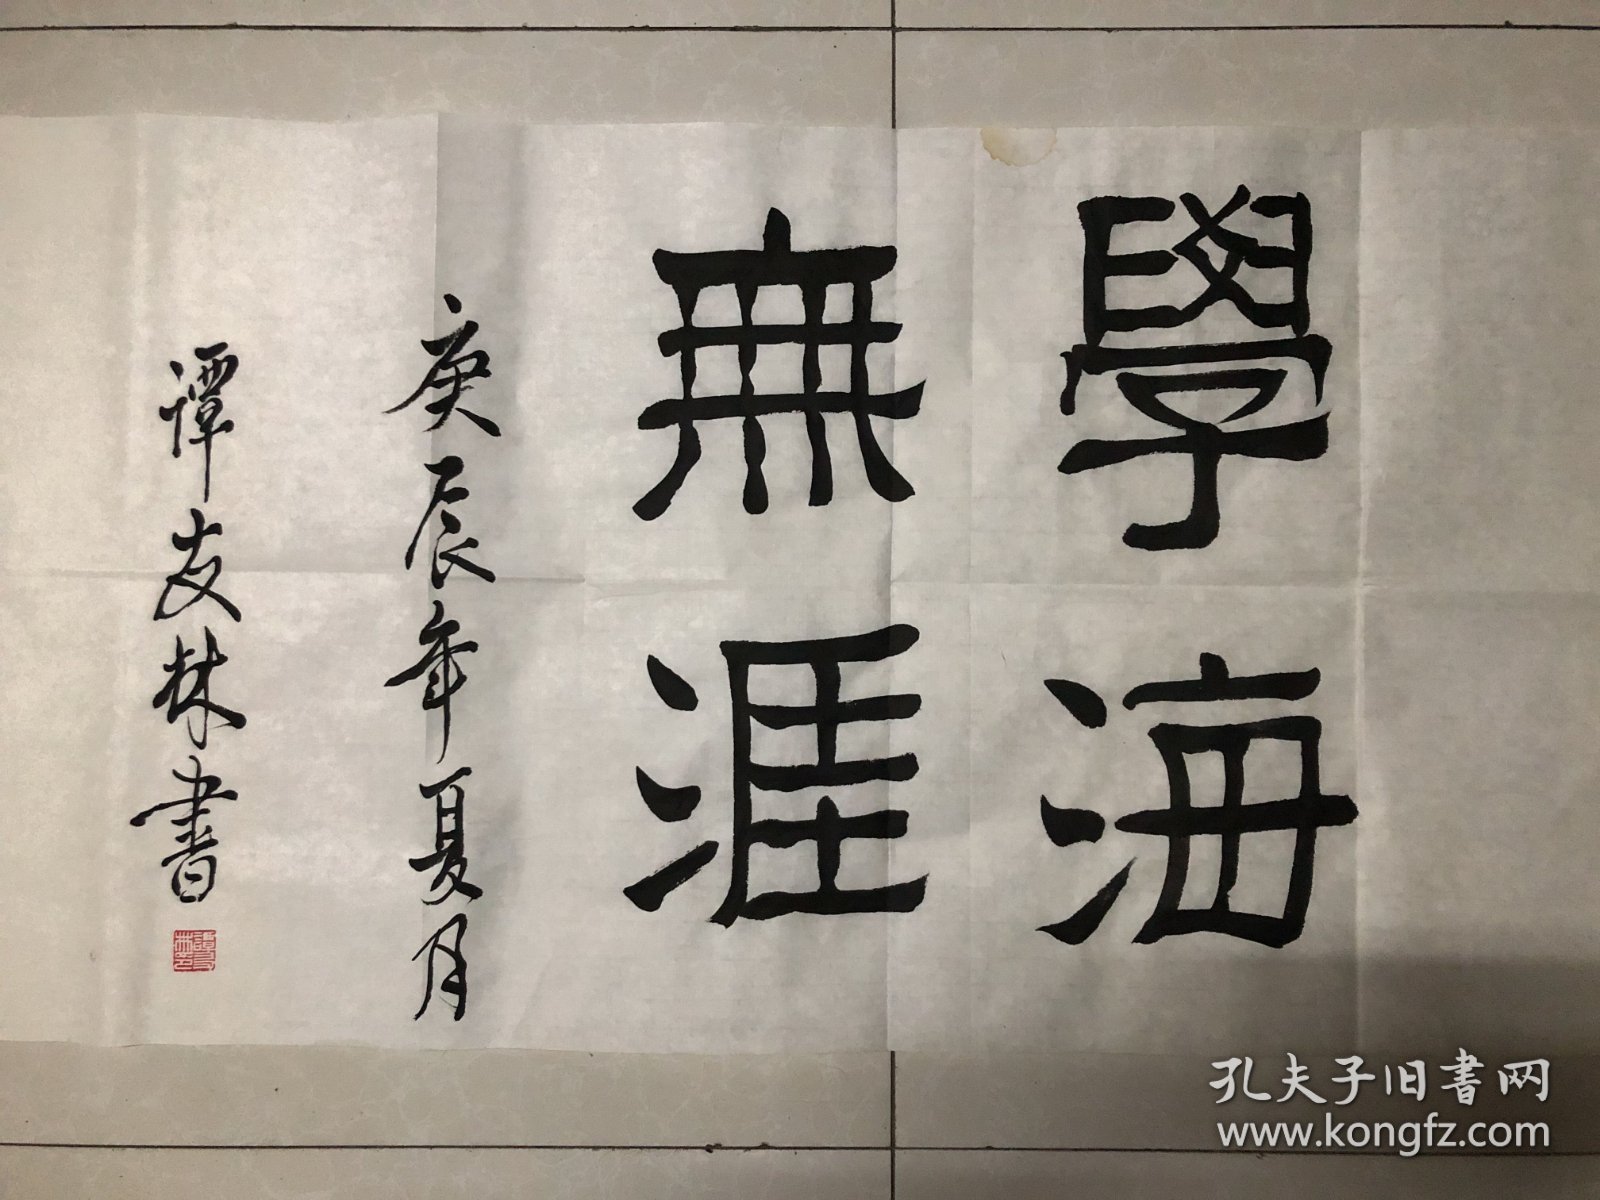 學海
無涯
庚辰年夏月
谭友林書
孔夫子旧書网
www.kongfz.com